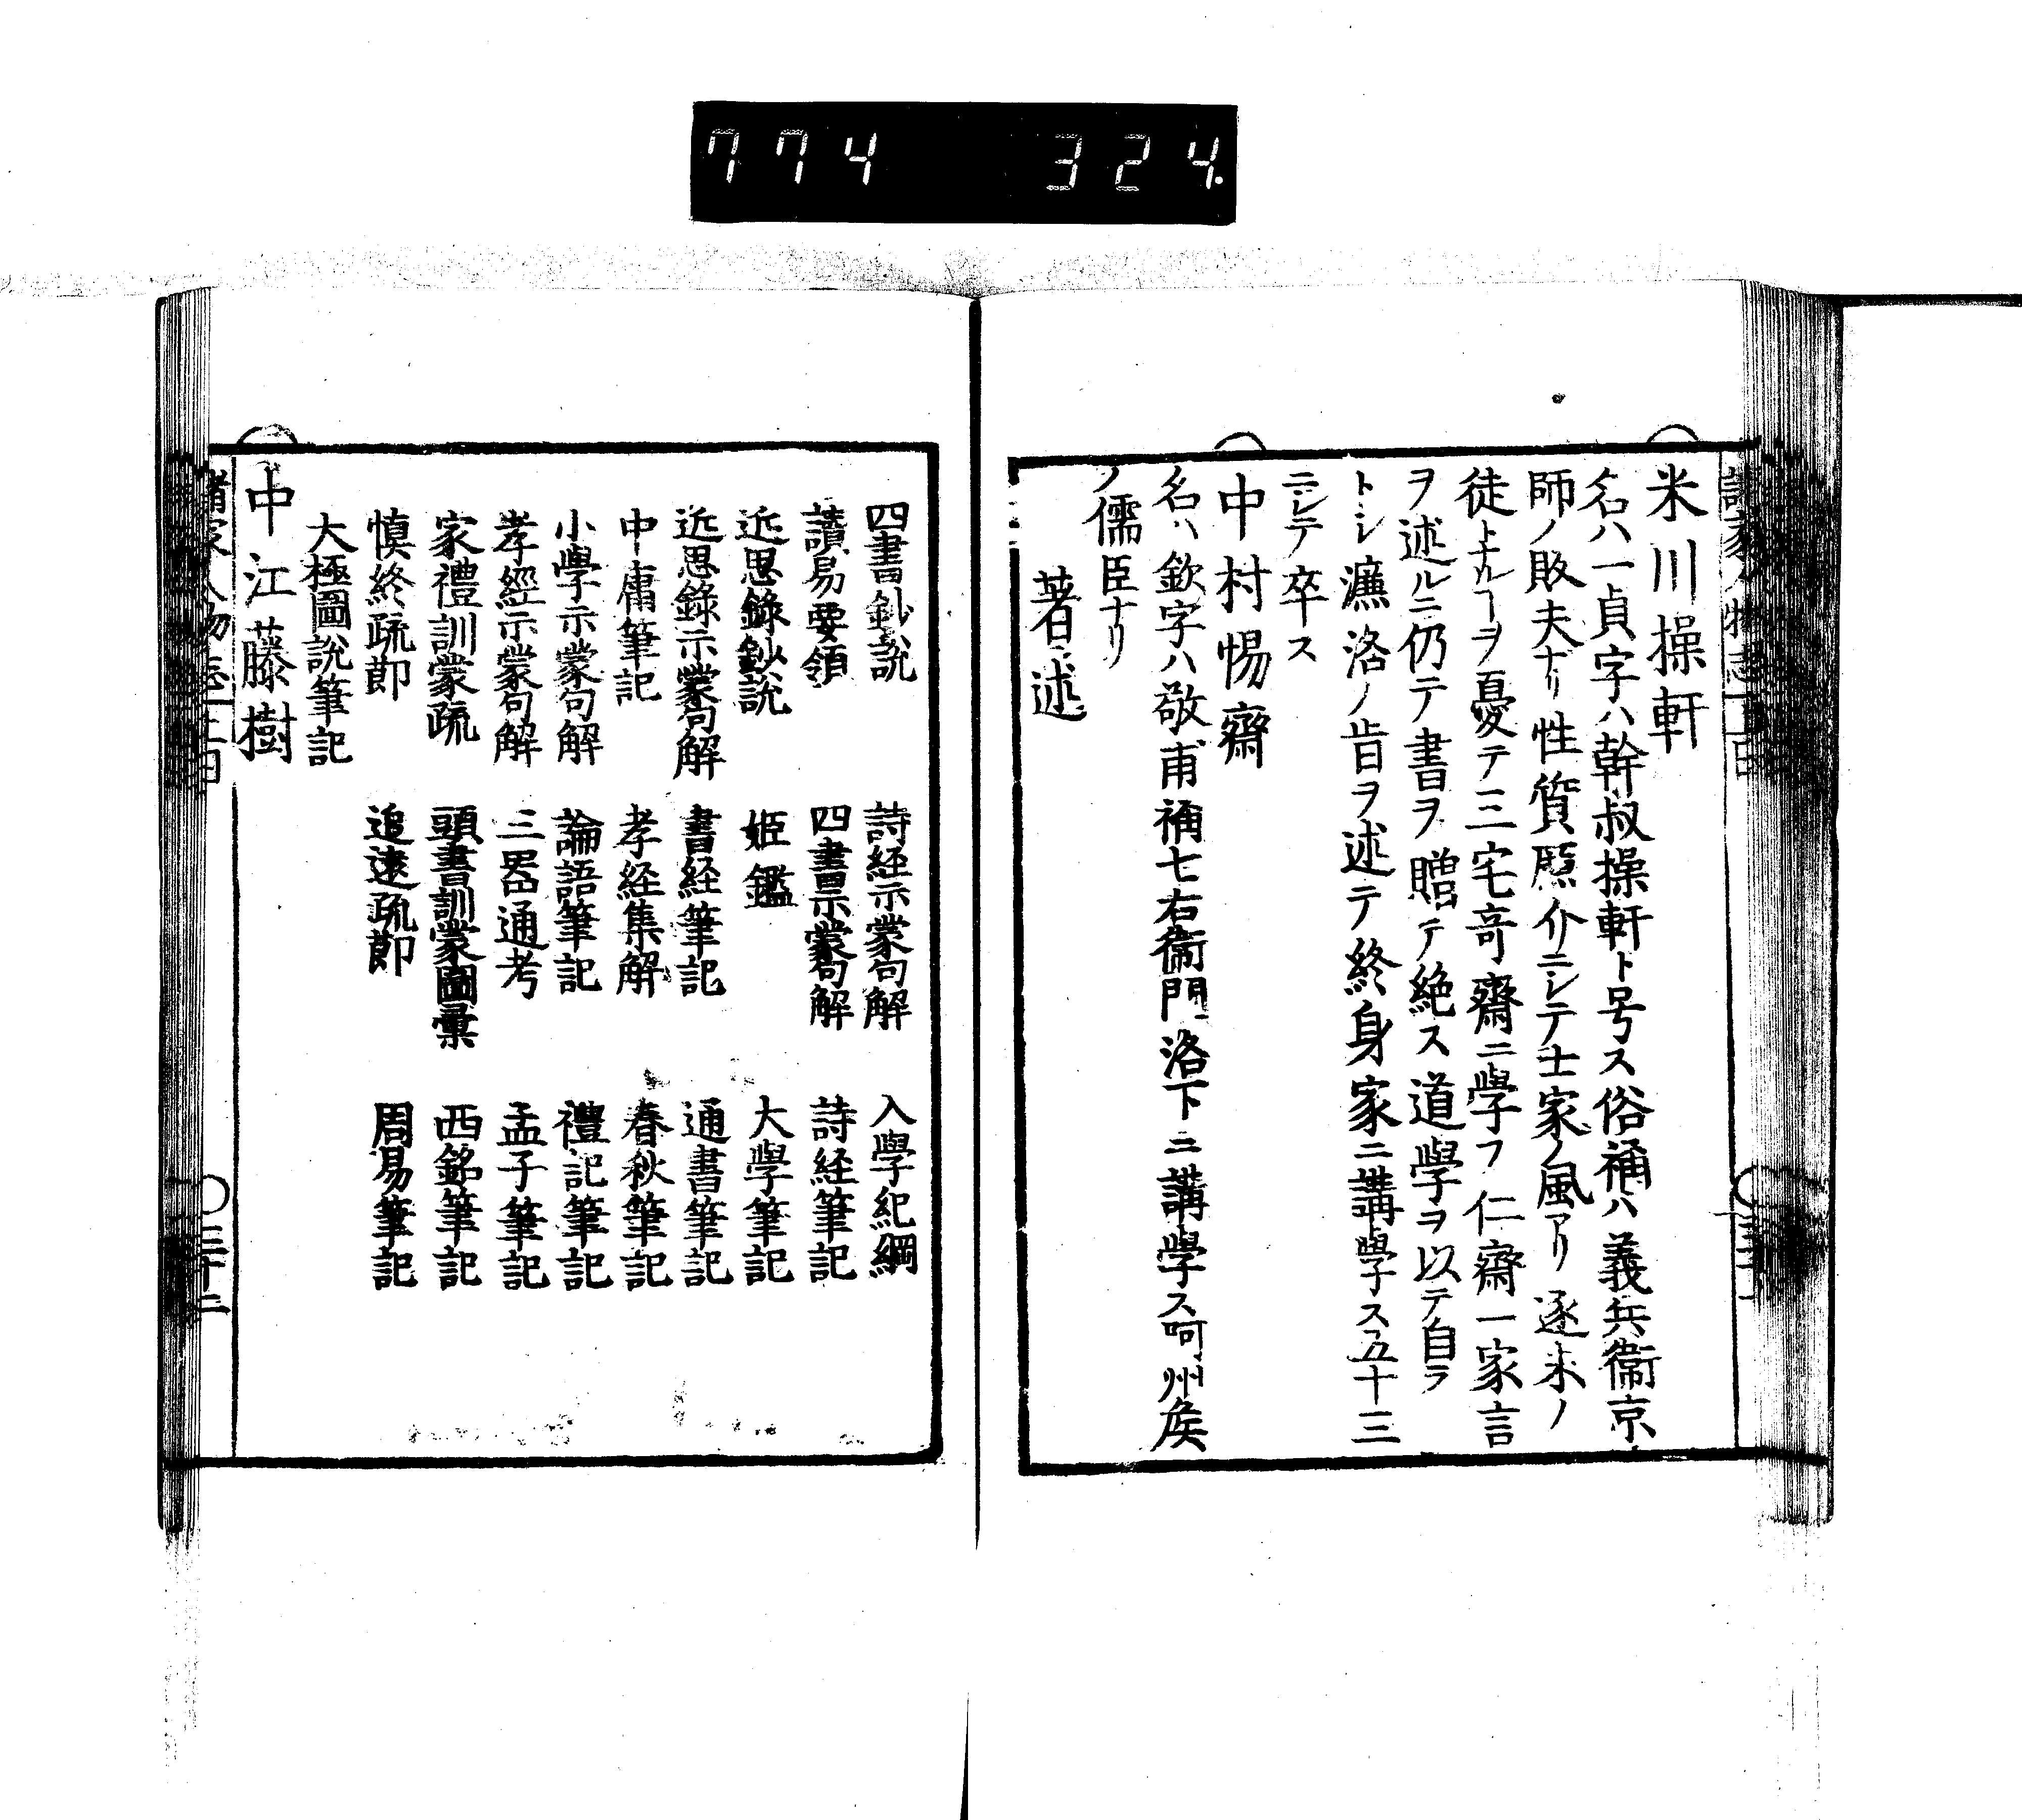 774 324.
米川操軒
名ハ一貞字ハ幹叔操軒ト号ス俗稱ハ義兵衞京
師ノ敗夫ナリ性質愨介ニシテ士家ノ風アリ遂ニ米ノ
徒トナルヿヲ憂テ三宅竒齋ニ學フ仁齋一家言
ヲ述ルニ仍テ書ヲ贈テ絶ス道學ヲ以テ自ラ
トシ濂洛ノ旨ヲ述テ終身家ニ講學ス五十三
ニシテ卒ス
中村惕齋
名ハ欽字ハ敬甫稱七右衞門洛下ニ講學ス呵州侯
ノ儒臣ナリ
著述
四書鈔說 詩経示蒙句解 入學紀綱
讀易要領 四書示蒙句解 詩経筆記
近思錄鈔說 姫鑑 大學筆記
近思錄示蒙句解 書経筆記 通書筆記
中庸筆記 孝経集解 春秋筆記
小學示蒙句解 論語筆記 禮記筆記
孝經示蒙句解 三器通考 孟子筆記
家禮訓蒙疏 頭書訓蒙圖彙 西銘筆記
慎終疏節 追遠疏節 周易筆記
大極圖說筆記
中江藤樹
諸家人物志 三十二